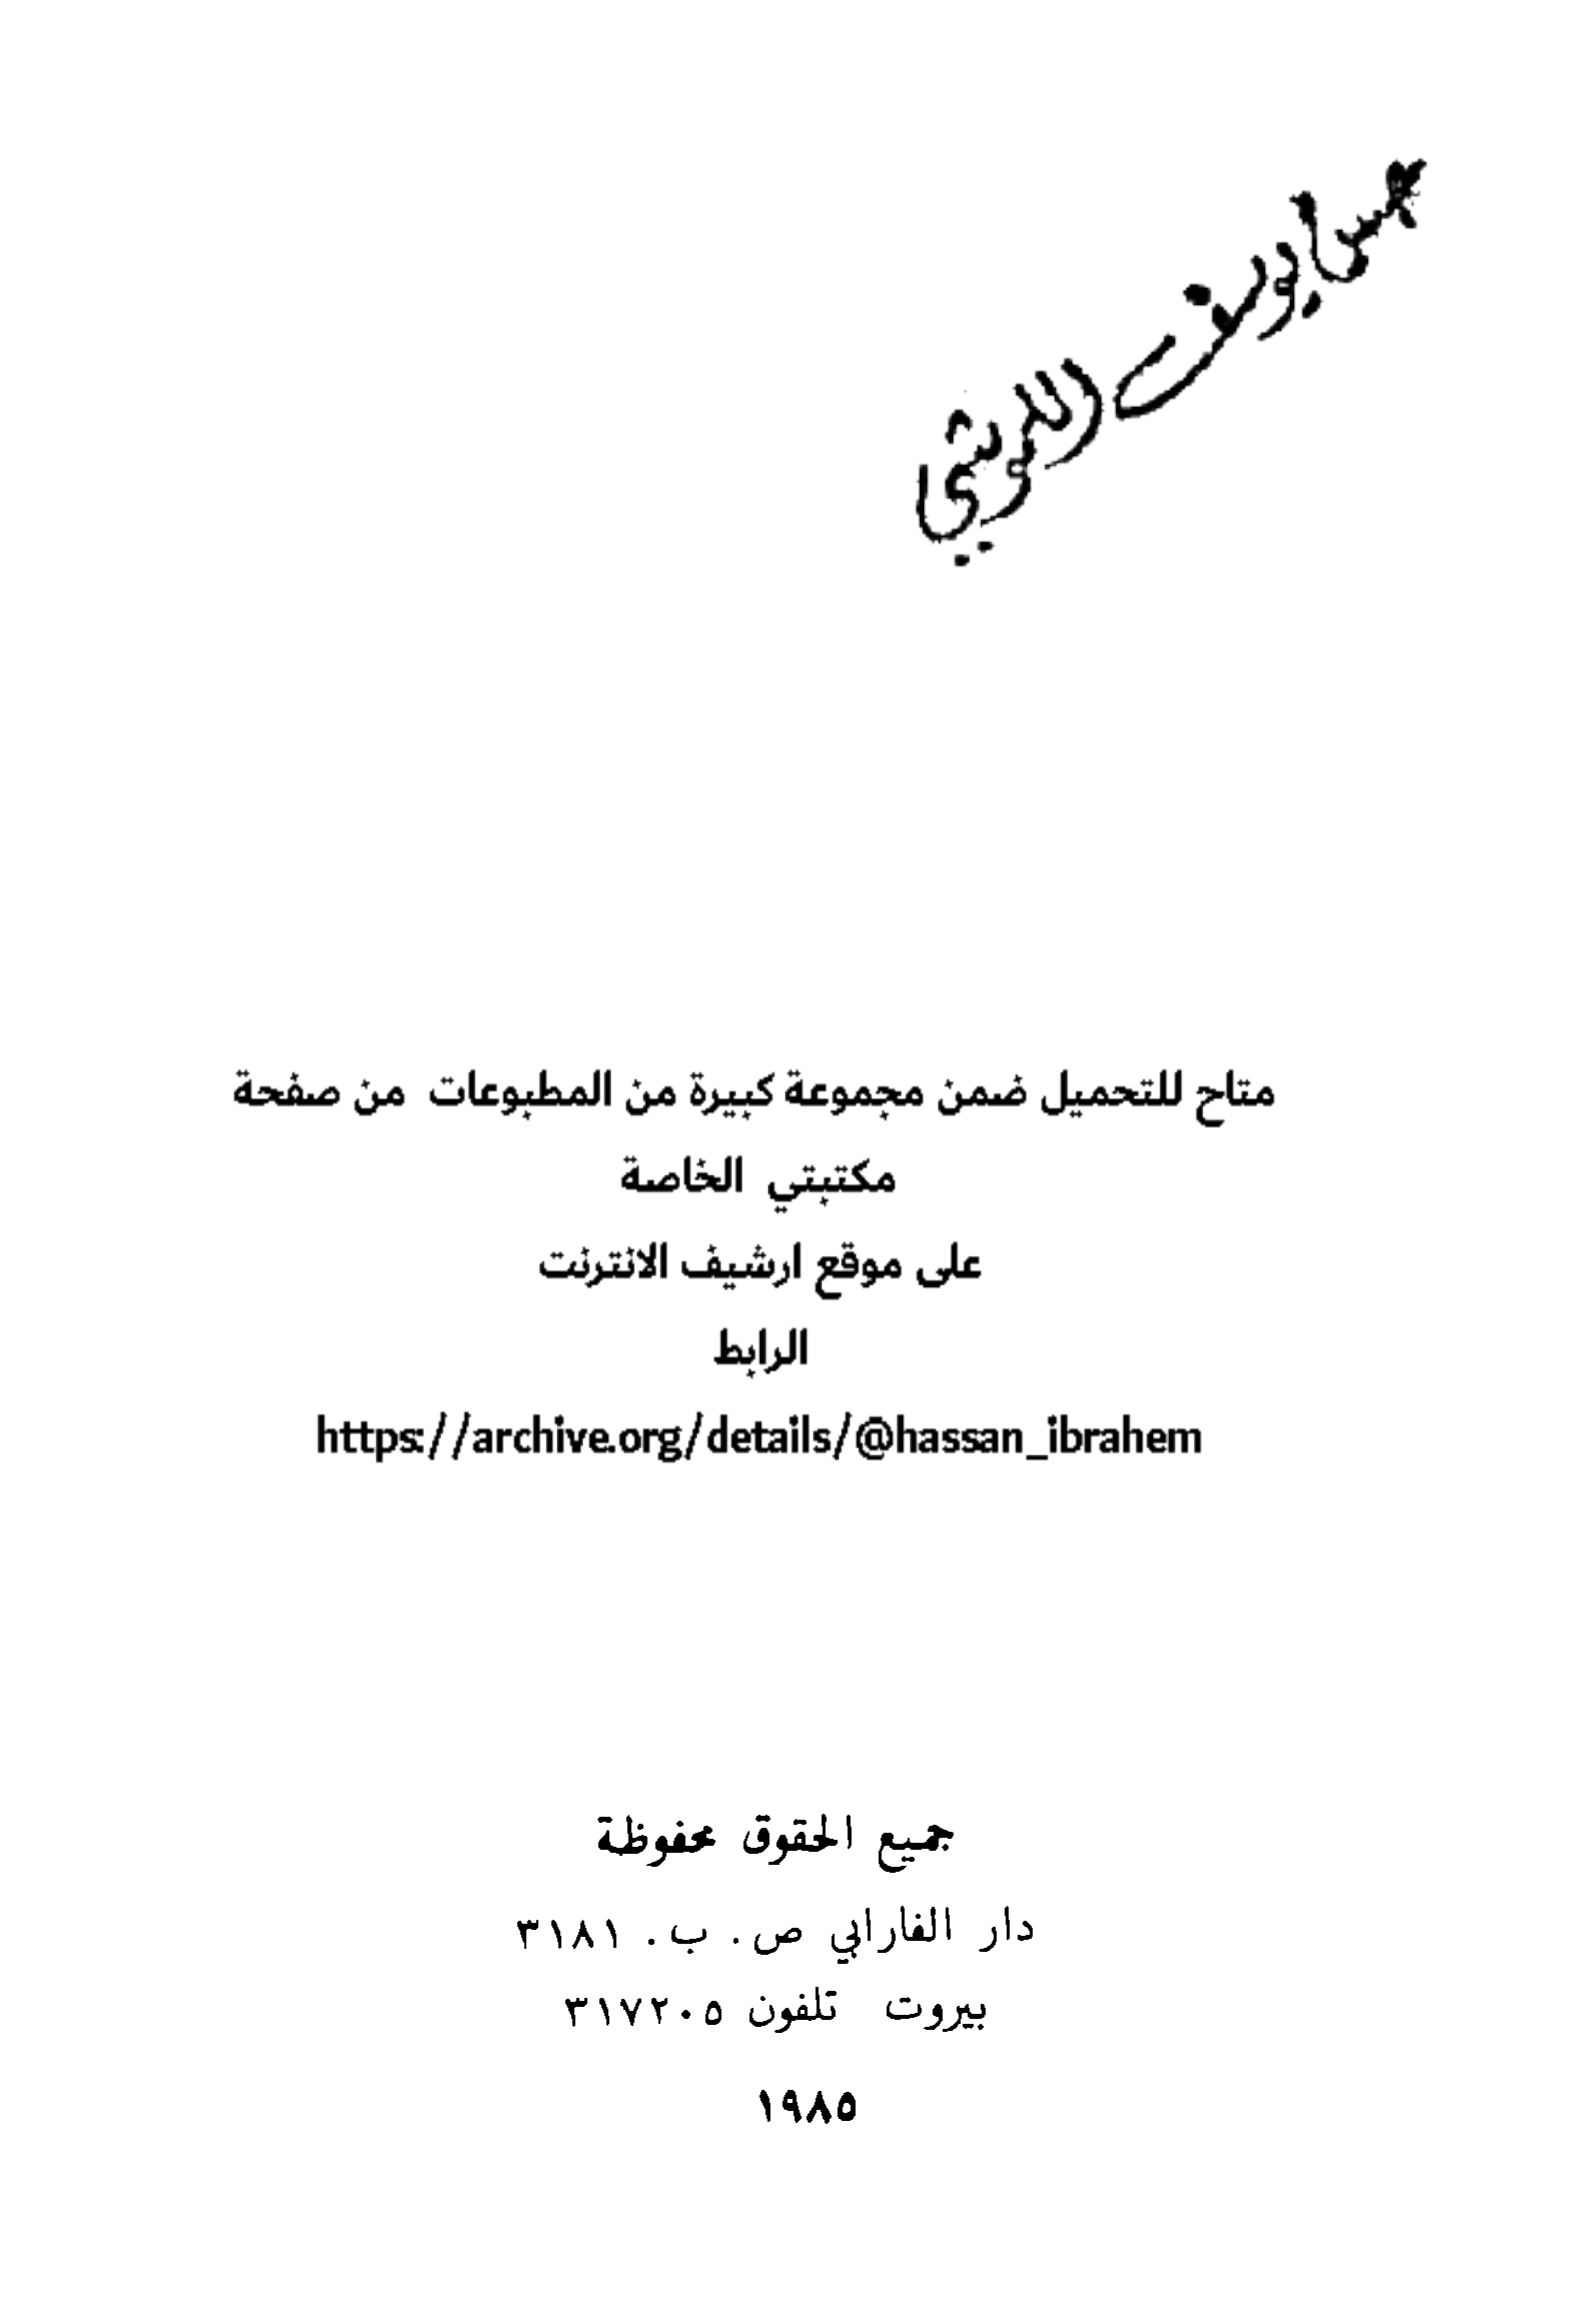 يوسف
متاح للتحميل ضمن مجموعة كبيرة من المطبوعات من صفحة
مكتبتي الخاصة
على موقع ارشيف الانترنت
الرابط
https://archive.org/details/@hassan_ibrahem
جميع الحقوق محفوظة
دار الفارابي ص. ب. ٣١٨١
بيروت تلفون ٣١٧٢٠٥
١٩٨٥